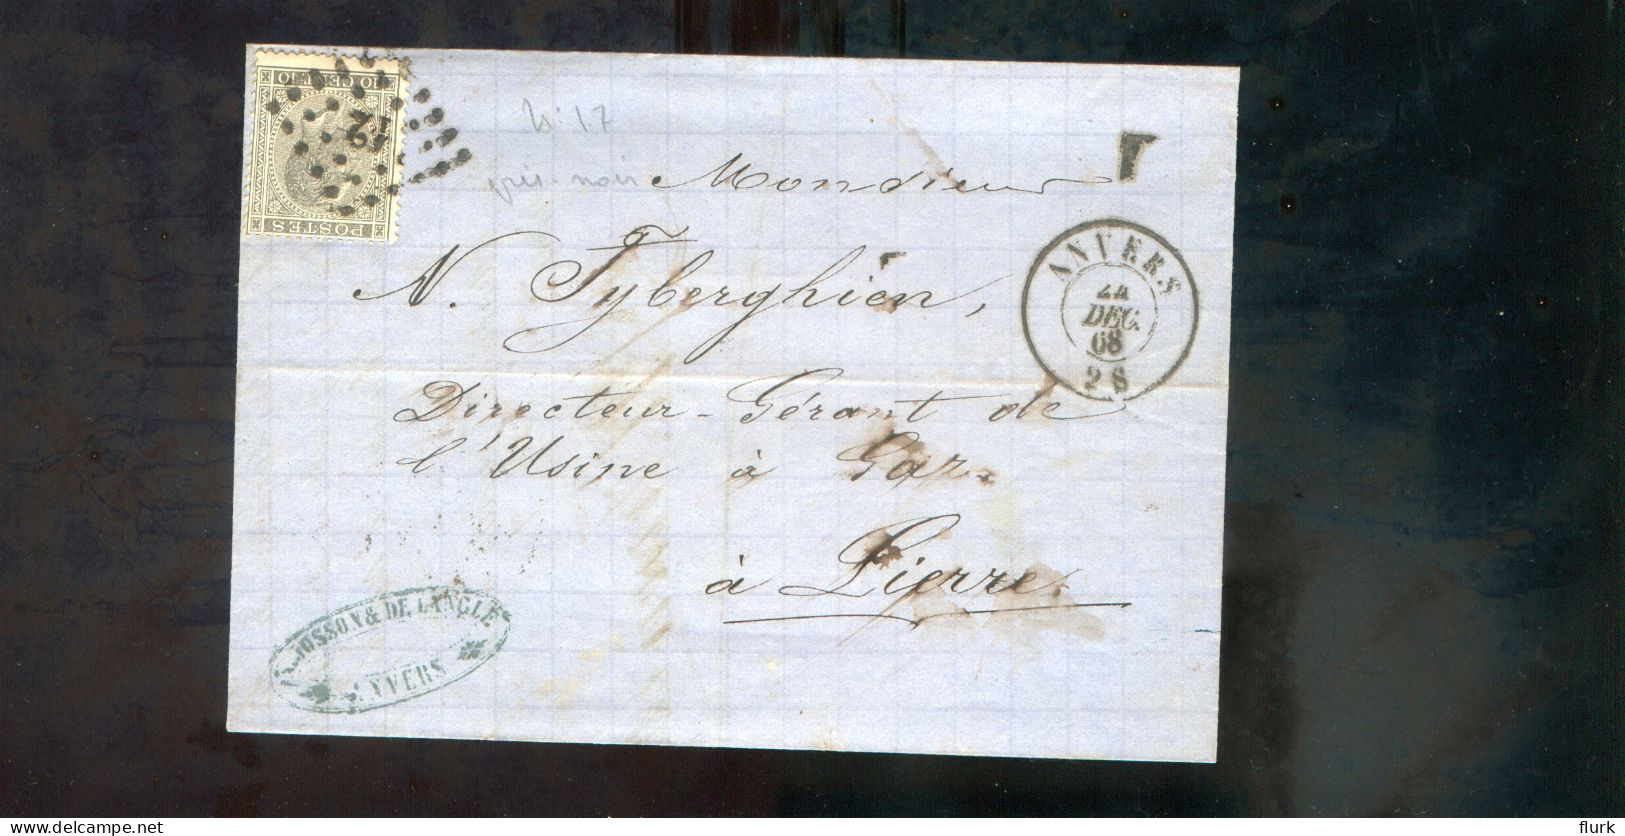 10 CENT. 10
12
POSTES
N: 17
gris-noir
Monsieur
N. Tyberghien,
Directeur-Gérant de
l'Usine à Gaz.
à Lierre.
ANVERS
24
DEC.
68
2 S
JOSSON & DE LANGLE
ANVERS
delcampe.net
flurk